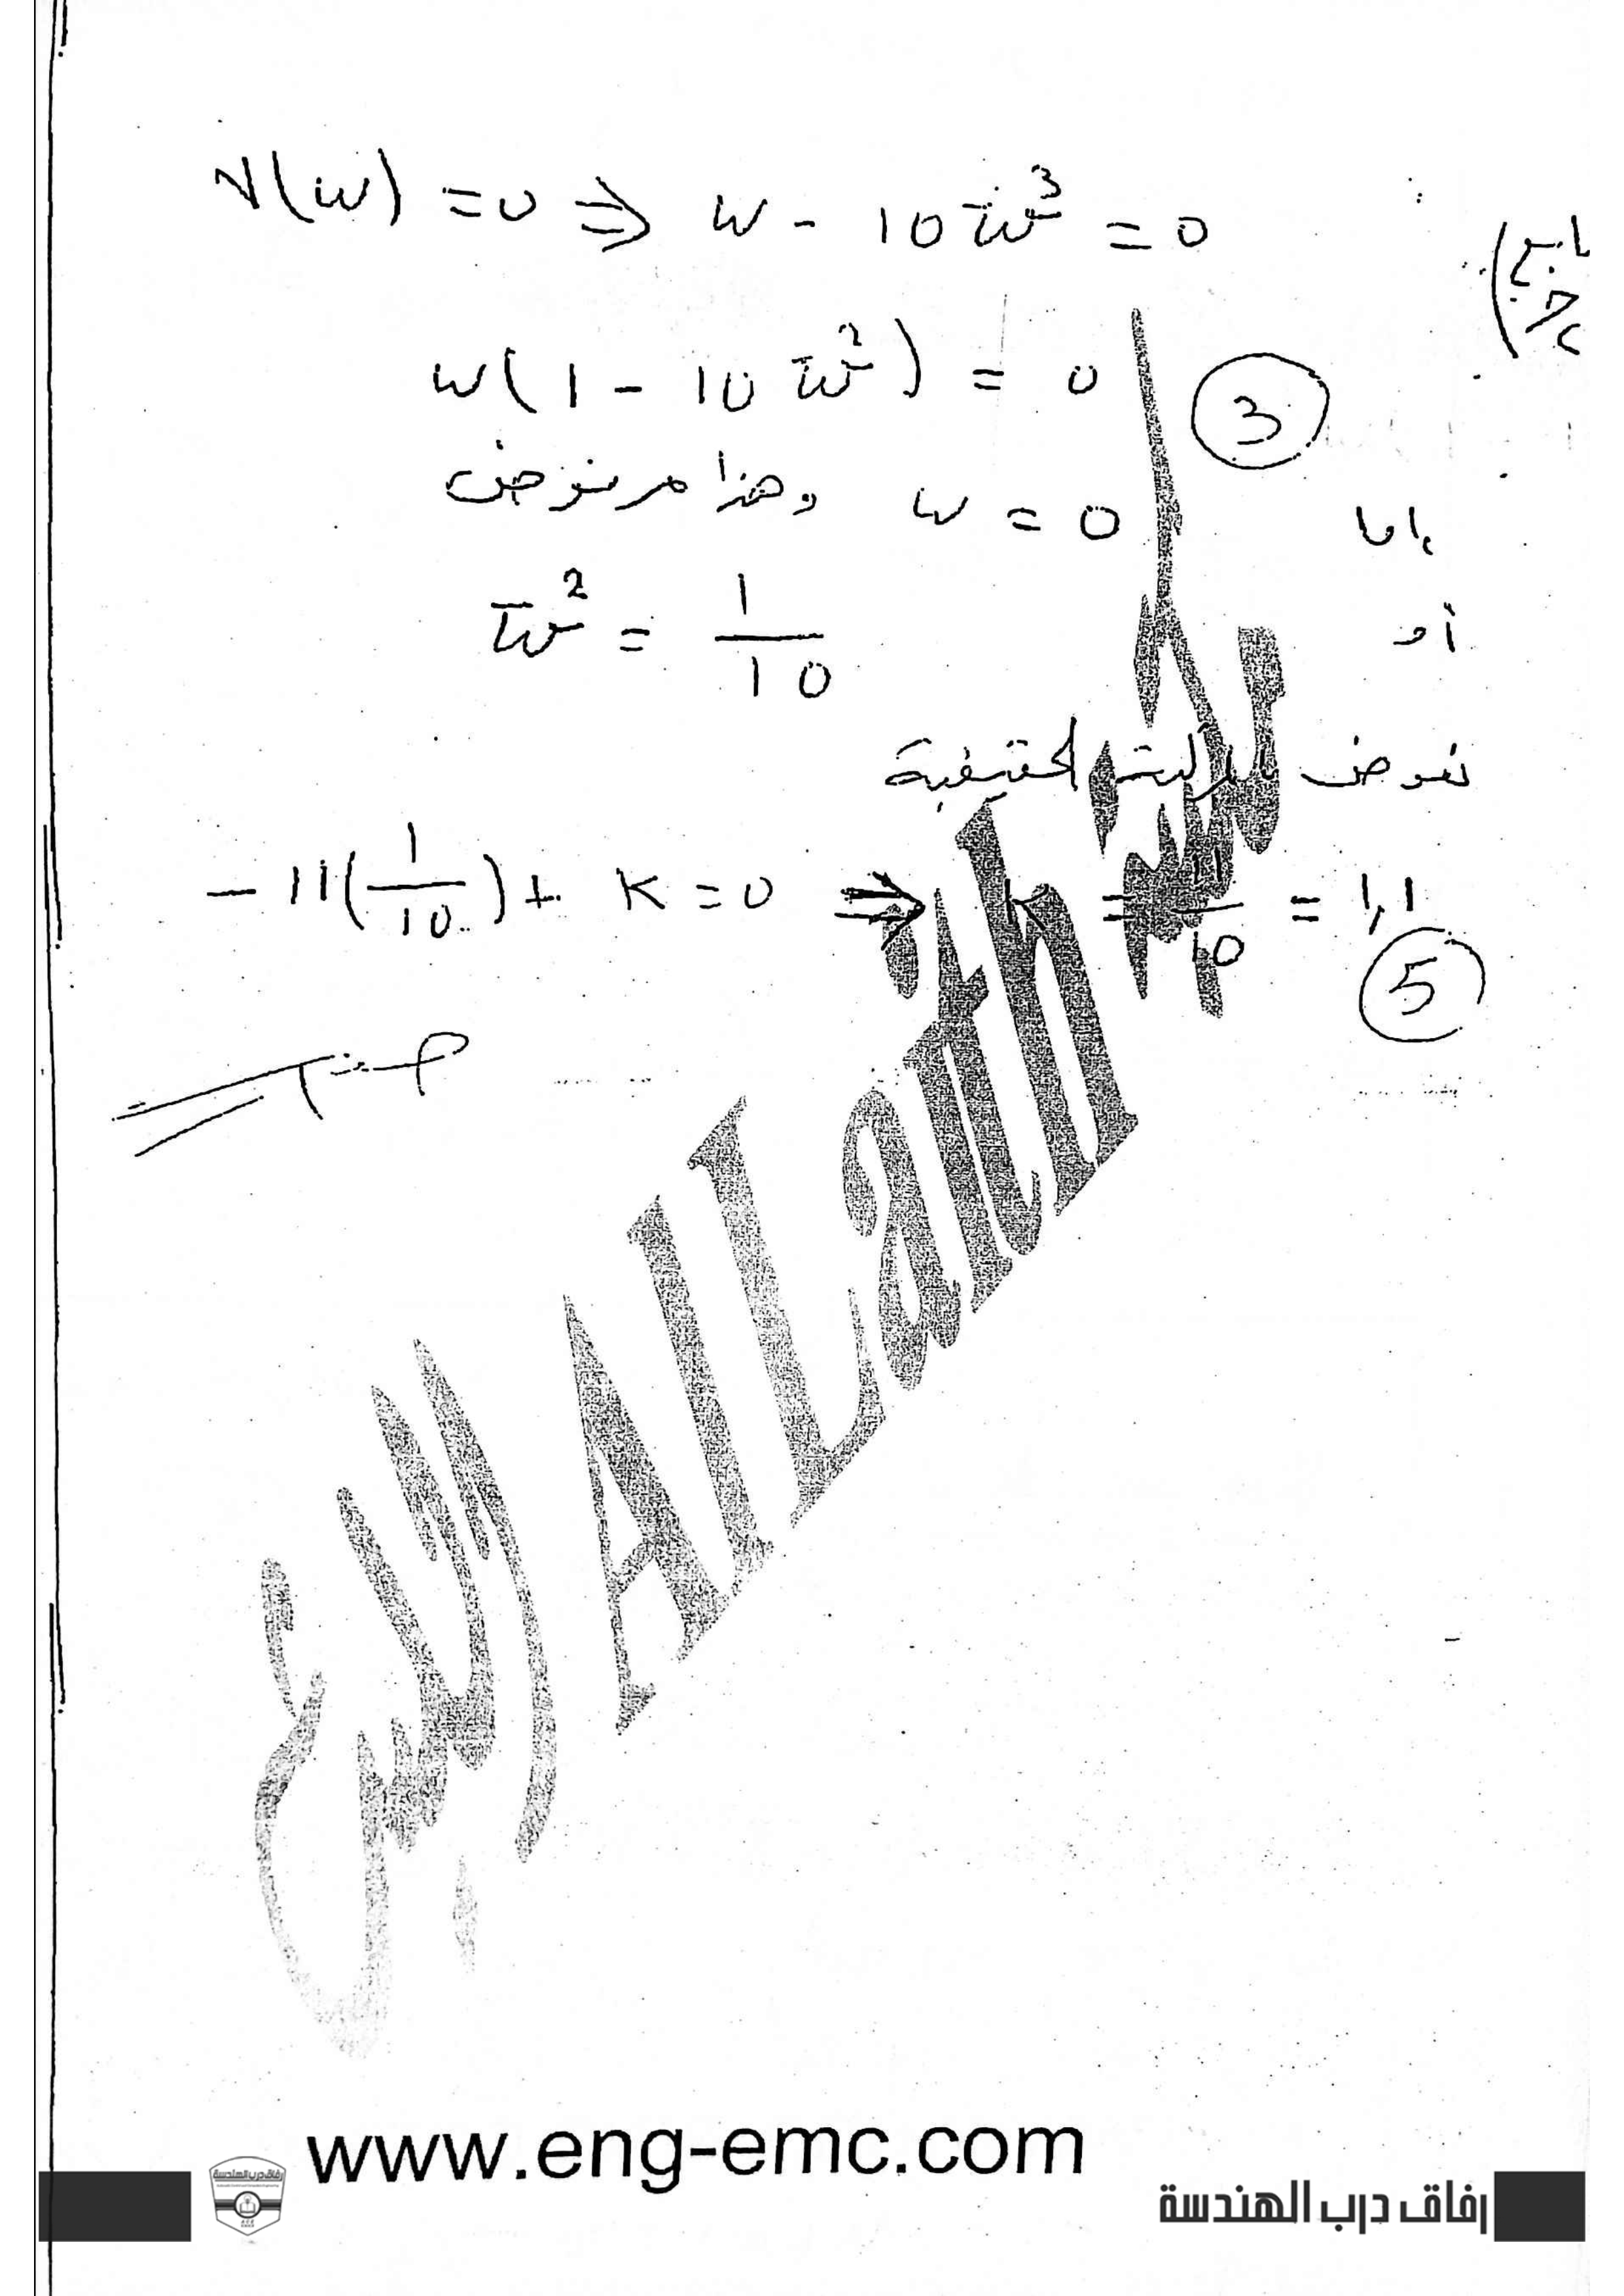 V(ω) = 0 ⇒ ω - 10 ω̄³ = 0
تابع
ω(1 - 10 ω̄²) = 0
3
إما ω = 0 وهذا مرفوض
أو ω̄² = 1/10
نعوض بالمركبة الحقيقية
- 11(1/10) + K = 0 ⇒ K = 11/10 = 1,1
5
AlLaith
www.eng-emc.com
رفاق درب الهندسة